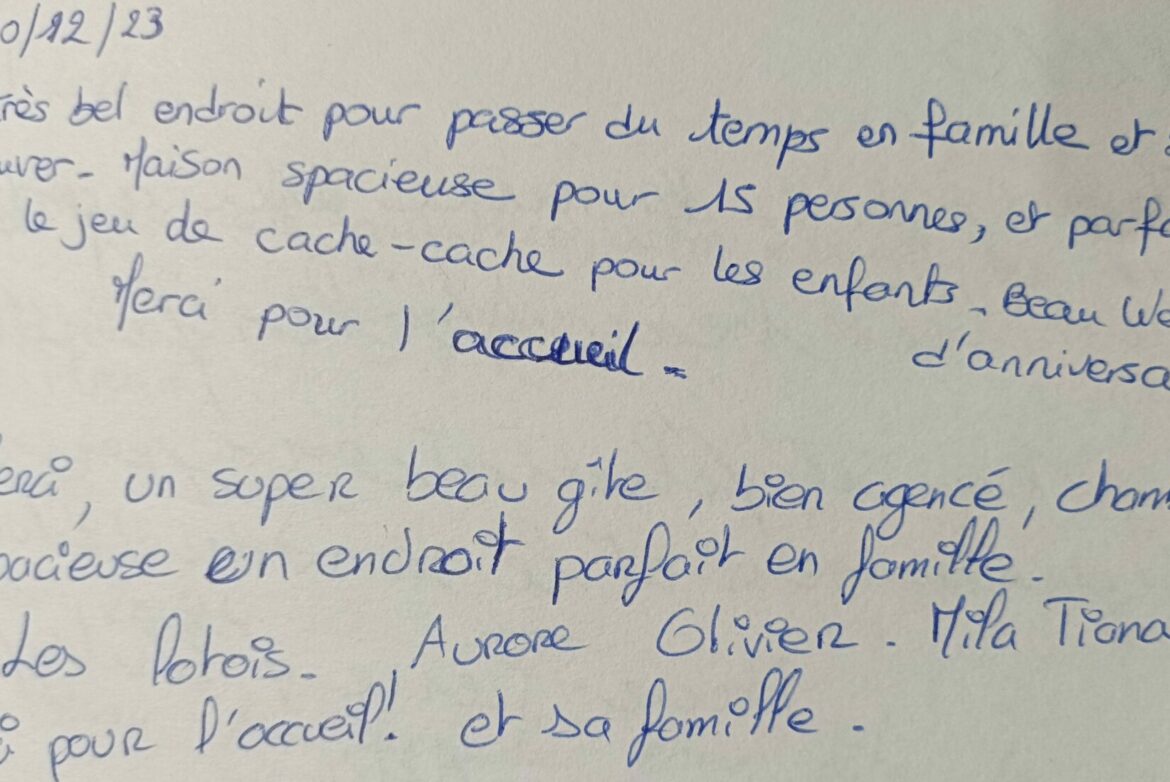 0/12/23
rès bel endroit pour passer du temps en famille et
uver - Maison spacieuse pour 15 personnes, et parfa
le jeu de cache-cache pour les enfants - Beau We
Merci pour l'accueil - d'anniversa
erci, un super beau gîte, bien agencé, cham
pacieuse un endroit parfait en famille.
Les Potois. Aurore Olivier. Mila Tiana
i pour l'accueil! et sa famille.